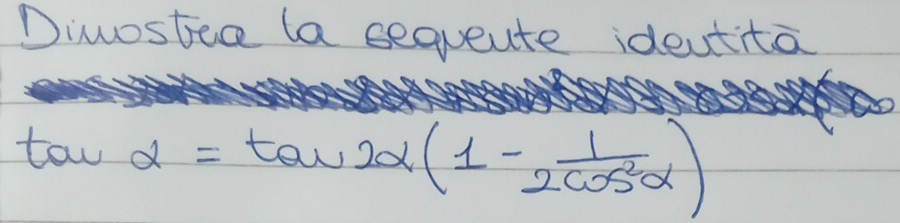 Dimostra la seguente identità
tan α = tan 2α (1 - 1/(2cos²α))